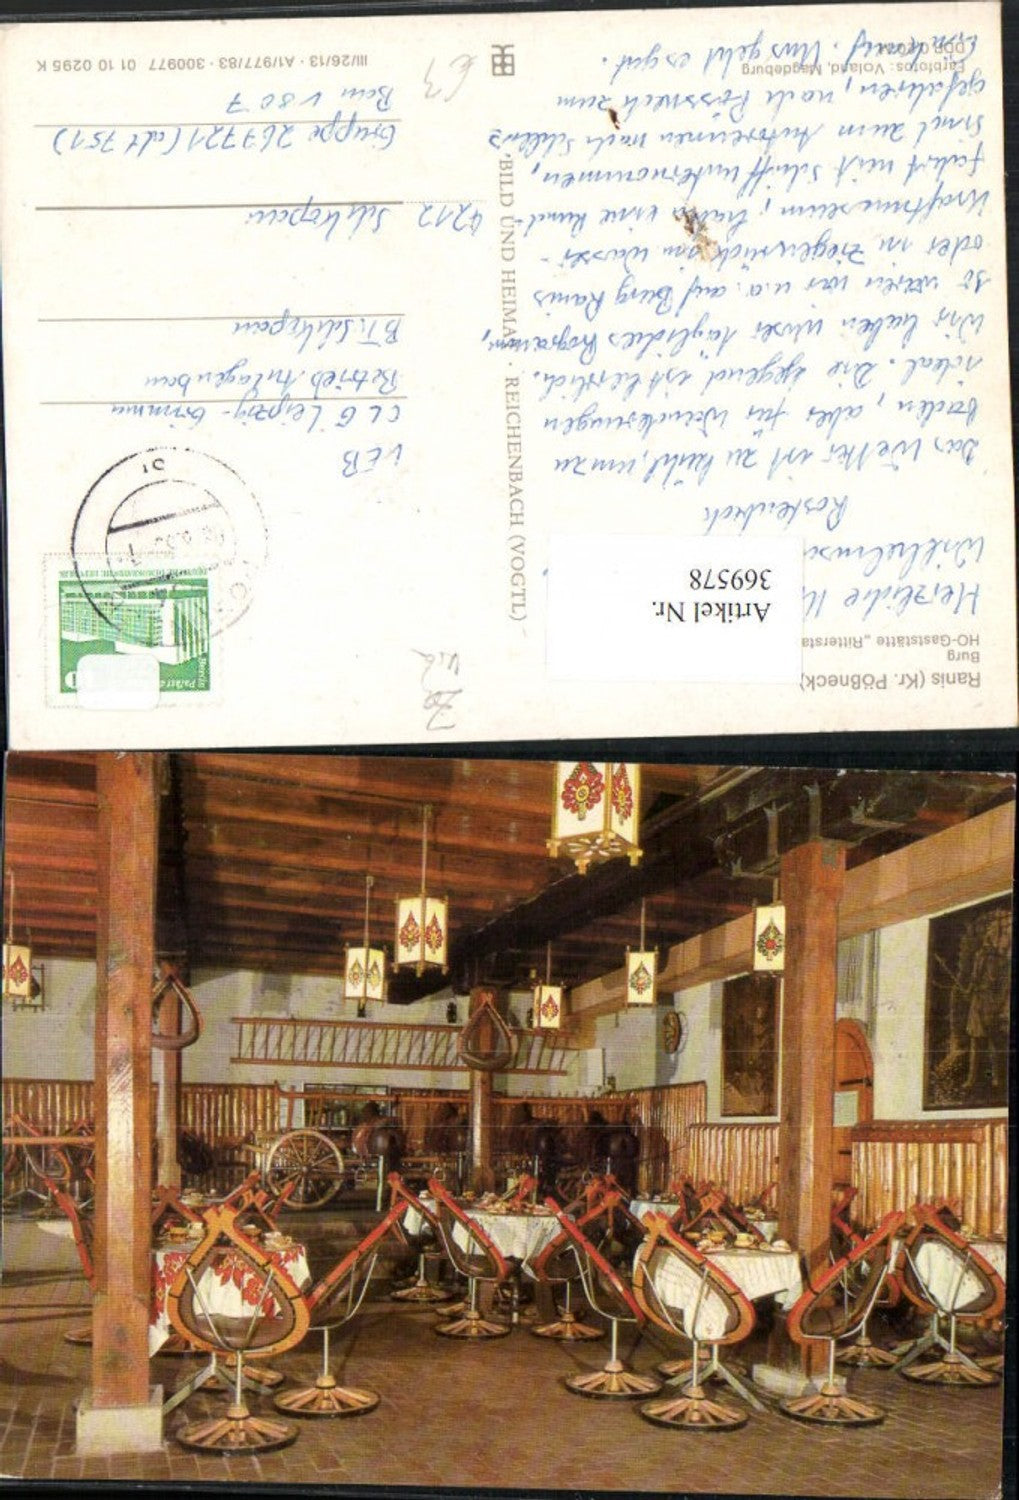 Ranis (Kr. Pößneck)
Burg
HO-Gaststätte „Rittersta
Artikel Nr.
369578
Herzliche
Wilhelms
Das Wetter ist zu kühl, um zu
baden, aber für Wanderungen
ideal. Die Gegend ist herrlich.
Wir haben unser tägliches Programm,
so waren wir u.a. auf Burg Ranis
oder in Ziegenrück im Wasser-
kraftmuseum, haben eine Rund-
fahrt mit Schiff unternommen,
sind zum Autorennen nach Schleiz
gefahren, nach Pössneck zum
Einkauf. Uns geht es gut.
Farbfotos: Voland, Magdeburg
BILD UND HEIMAT · REICHENBACH (VOGTL)
VEB
CLG Leipzig-Grimma
Betrieb Anlagenbau
BT. Schkopau
4212 Schkopau
Gruppe 267721 (alt 751)
Bau V 807
III/26/13 · A1/977/83 · 300977 01 10 0295 K
DEUTSCHE DEMOKRATISCHE REPUBLIK
Berlin